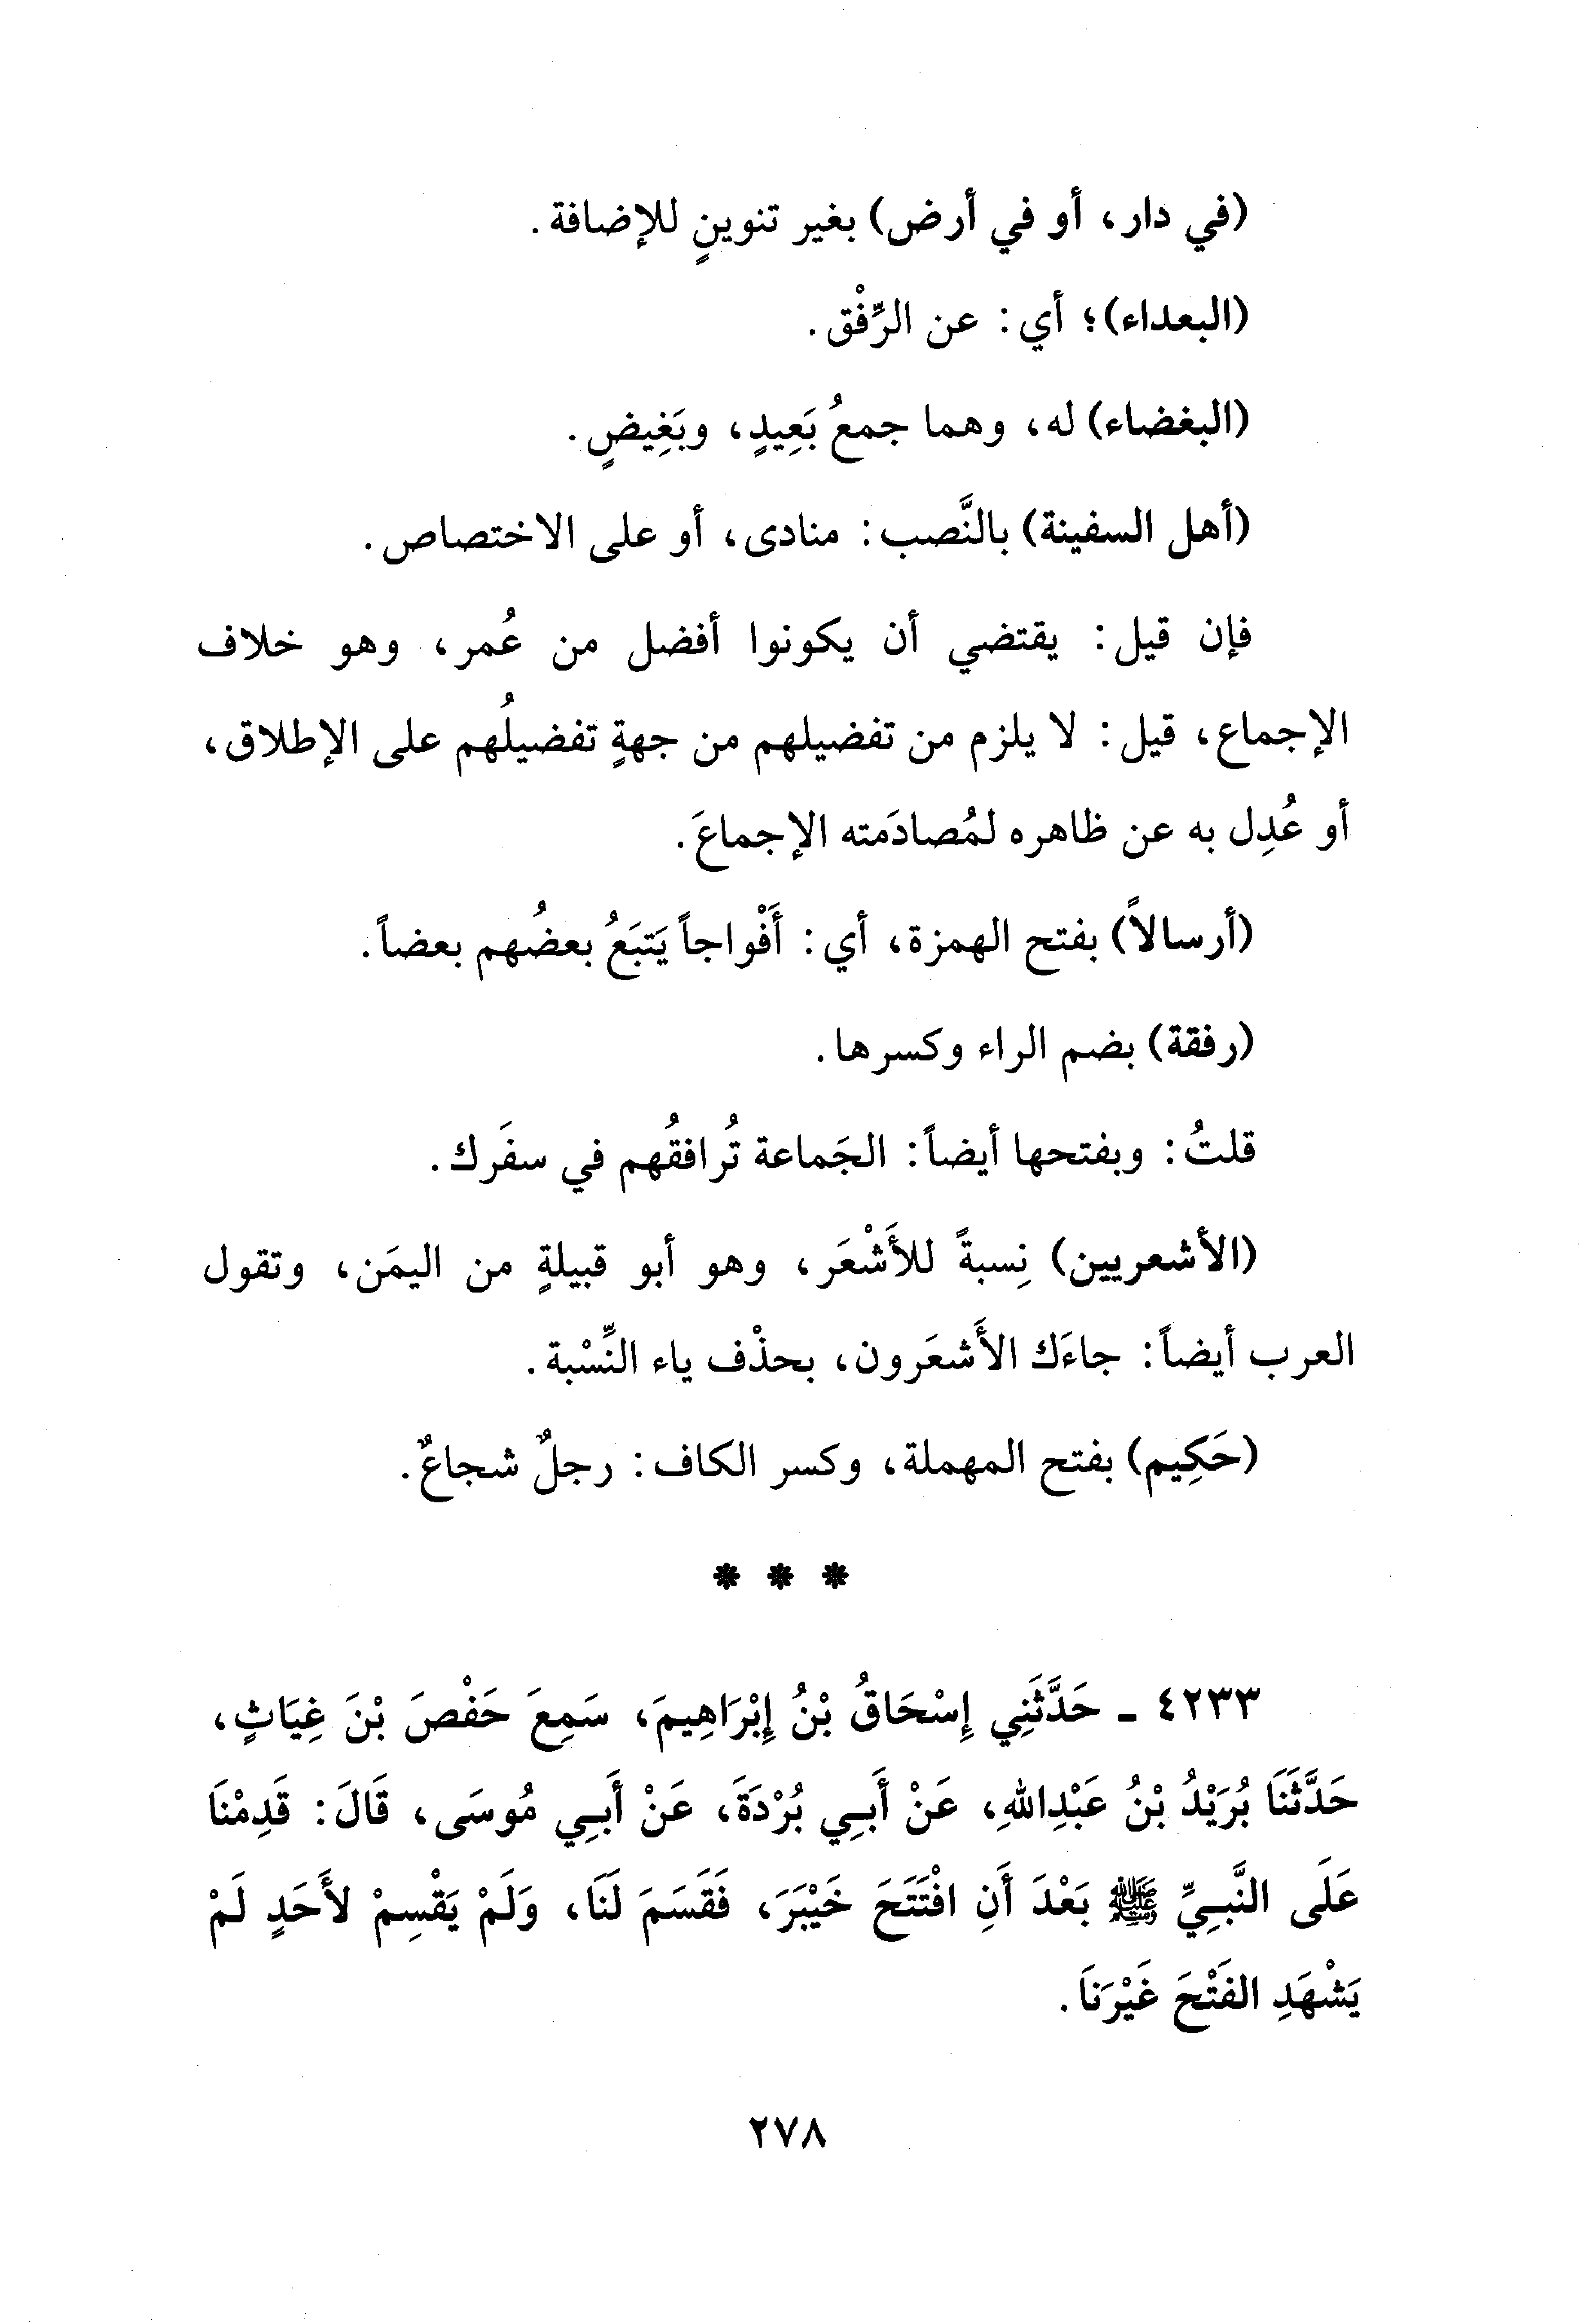 (في دار، أو في أرض) بغير تنوينٍ للإضافة.
(البعداء)؛ أي: عن الرِّفْق.
(البغضاء) له، وهما جمعُ بَعِيدٍ، وبَغِيضٍ.
(أهل السفينة) بالنَّصب: منادى، أو على الاختصاص.
فإن قيل: يقتضي أن يكونوا أفضل من عُمر، وهو خلاف
الإجماع، قيل: لا يلزم من تفضيلهم من جهةٍ تفضيلُهم على الإطلاق،
أو عُدِل به عن ظاهره لمُصادَمته الإجماعَ.
(أرسالاً) بفتح الهمزة، أي: أَفْواجاً يَتبَعُ بعضُهم بعضاً.
(رفقة) بضم الراء وكسرها.
قلتُ: وبفتحها أيضاً: الجَماعة تُرافقُهم في سفَرك.
(الأشعريين) نِسبةً للأَشْعَر، وهو أبو قبيلةٍ من اليمَن، وتقول
العرب أيضاً: جاءَك الأَشعَرون، بحذْف ياء النِّسْبة.
(حَكِيم) بفتح المهملة، وكسر الكاف: رجلٌ شجاعٌ.
* * *
٤٢٣٣ - حَدَّثَنِي إِسْحَاقُ بْنُ إِبْرَاهِيمَ، سَمِعَ حَفْصَ بْنَ غِيَاثٍ،
حَدَّثَنَا بُرَيْدُ بْنُ عَبْدِاللهِ، عَنْ أَبِي بُرْدَةَ، عَنْ أَبِي مُوسَى، قَالَ: قَدِمْنَا
عَلَى النَّبِيِّ ﷺ بَعْدَ أَنِ افْتَتَحَ خَيْبَرَ، فَقَسَمَ لَنَا، وَلَمْ يَقْسِمْ لأَحَدٍ لَمْ
يَشْهَدِ الفَتْحَ غَيْرَنَا.
٢٧٨